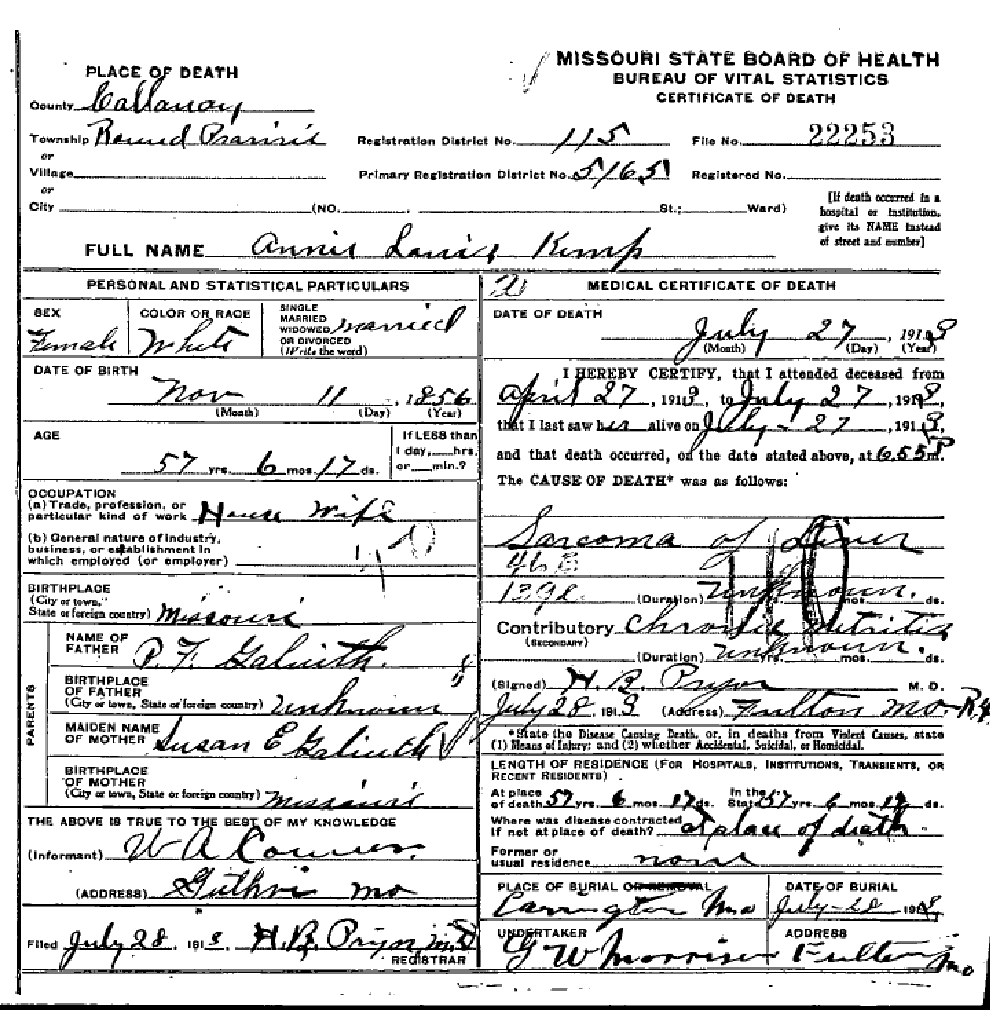 MISSOURI STATE BOARD OF HEALTH
BUREAU OF VITAL STATISTICS
CERTIFICATE OF DEATH
PLACE OF DEATH
County Callaway
Township Round Prairie
or
Village
or
City (NO. St.; Ward)
Registration District No. 115 File No. 22253
Primary Registration District No. 5165 Registered No.
[If death occurred in a
hospital or institution,
give its NAME instead
of street and number]
FULL NAME Annie Louis Kemp
PERSONAL AND STATISTICAL PARTICULARS
SEX Female
COLOR OR RACE White
SINGLE
MARRIED
WIDOWED
OR DIVORCED
(Write the word) Married
DATE OF BIRTH
Nov 11, 1856
(Month) (Day) (Year)
AGE
57 yrs. 6 mos. 17 ds.
If LESS than
1 day, hrs.
or min.?
OCCUPATION
(a) Trade, profession, or
particular kind of work House Wife
(b) General nature of industry,
business, or establishment in
which employed (or employer)
BIRTHPLACE
(City or town,
State or foreign country) Missouri
PARENTS
NAME OF
FATHER P. F.
BIRTHPLACE
OF FATHER
(City or town, State or foreign country) Unknown
MAIDEN NAME
OF MOTHER Susan E
BIRTHPLACE
OF MOTHER
(City or town, State or foreign country) Missouri
THE ABOVE IS TRUE TO THE BEST OF MY KNOWLEDGE
(Informant) W A
(ADDRESS) Guthrie Mo
Filed July 28, 191 H. B. Pryor M.D
REGISTRAR
MEDICAL CERTIFICATE OF DEATH
DATE OF DEATH
July 27, 191
(Month) (Day) (Year)
I HEREBY CERTIFY, that I attended deceased from
April 27, 191 , to July 27, 191
that I last saw her alive on July 27, 191
and that death occurred, on the date stated above, at 6.55 P m.
The CAUSE OF DEATH* was as follows:
Sarcoma of Liver
46
110
(Duration) Unknown. mos. ds.
Contributory Chronic
(SECONDARY)
(Duration) Unknown. yrs. mos. ds.
(Signed) H. B. Pryor M. D.
July 28, 191 (Address) Fulton Mo
*State the Disease Causing Death, or, in deaths from Violent Causes, state
(1) Means of Injury; and (2) whether Accidental, Suicidal, or Homicidal.
LENGTH OF RESIDENCE (FOR HOSPITALS, INSTITUTIONS, TRANSIENTS, OR
RECENT RESIDENTS)
At place
of death 57 yrs. 6 mos. 17 ds. In the
State 57 yrs. 6 mos. 17 ds.
Where was disease contracted
If not at place of death? at place of death
Former or
usual residence none
PLACE OF BURIAL OR REMOVAL
Carrington Mo
DATE OF BURIAL
July 28 191
UNDERTAKER
G W Morrison
ADDRESS
Fulton Mo